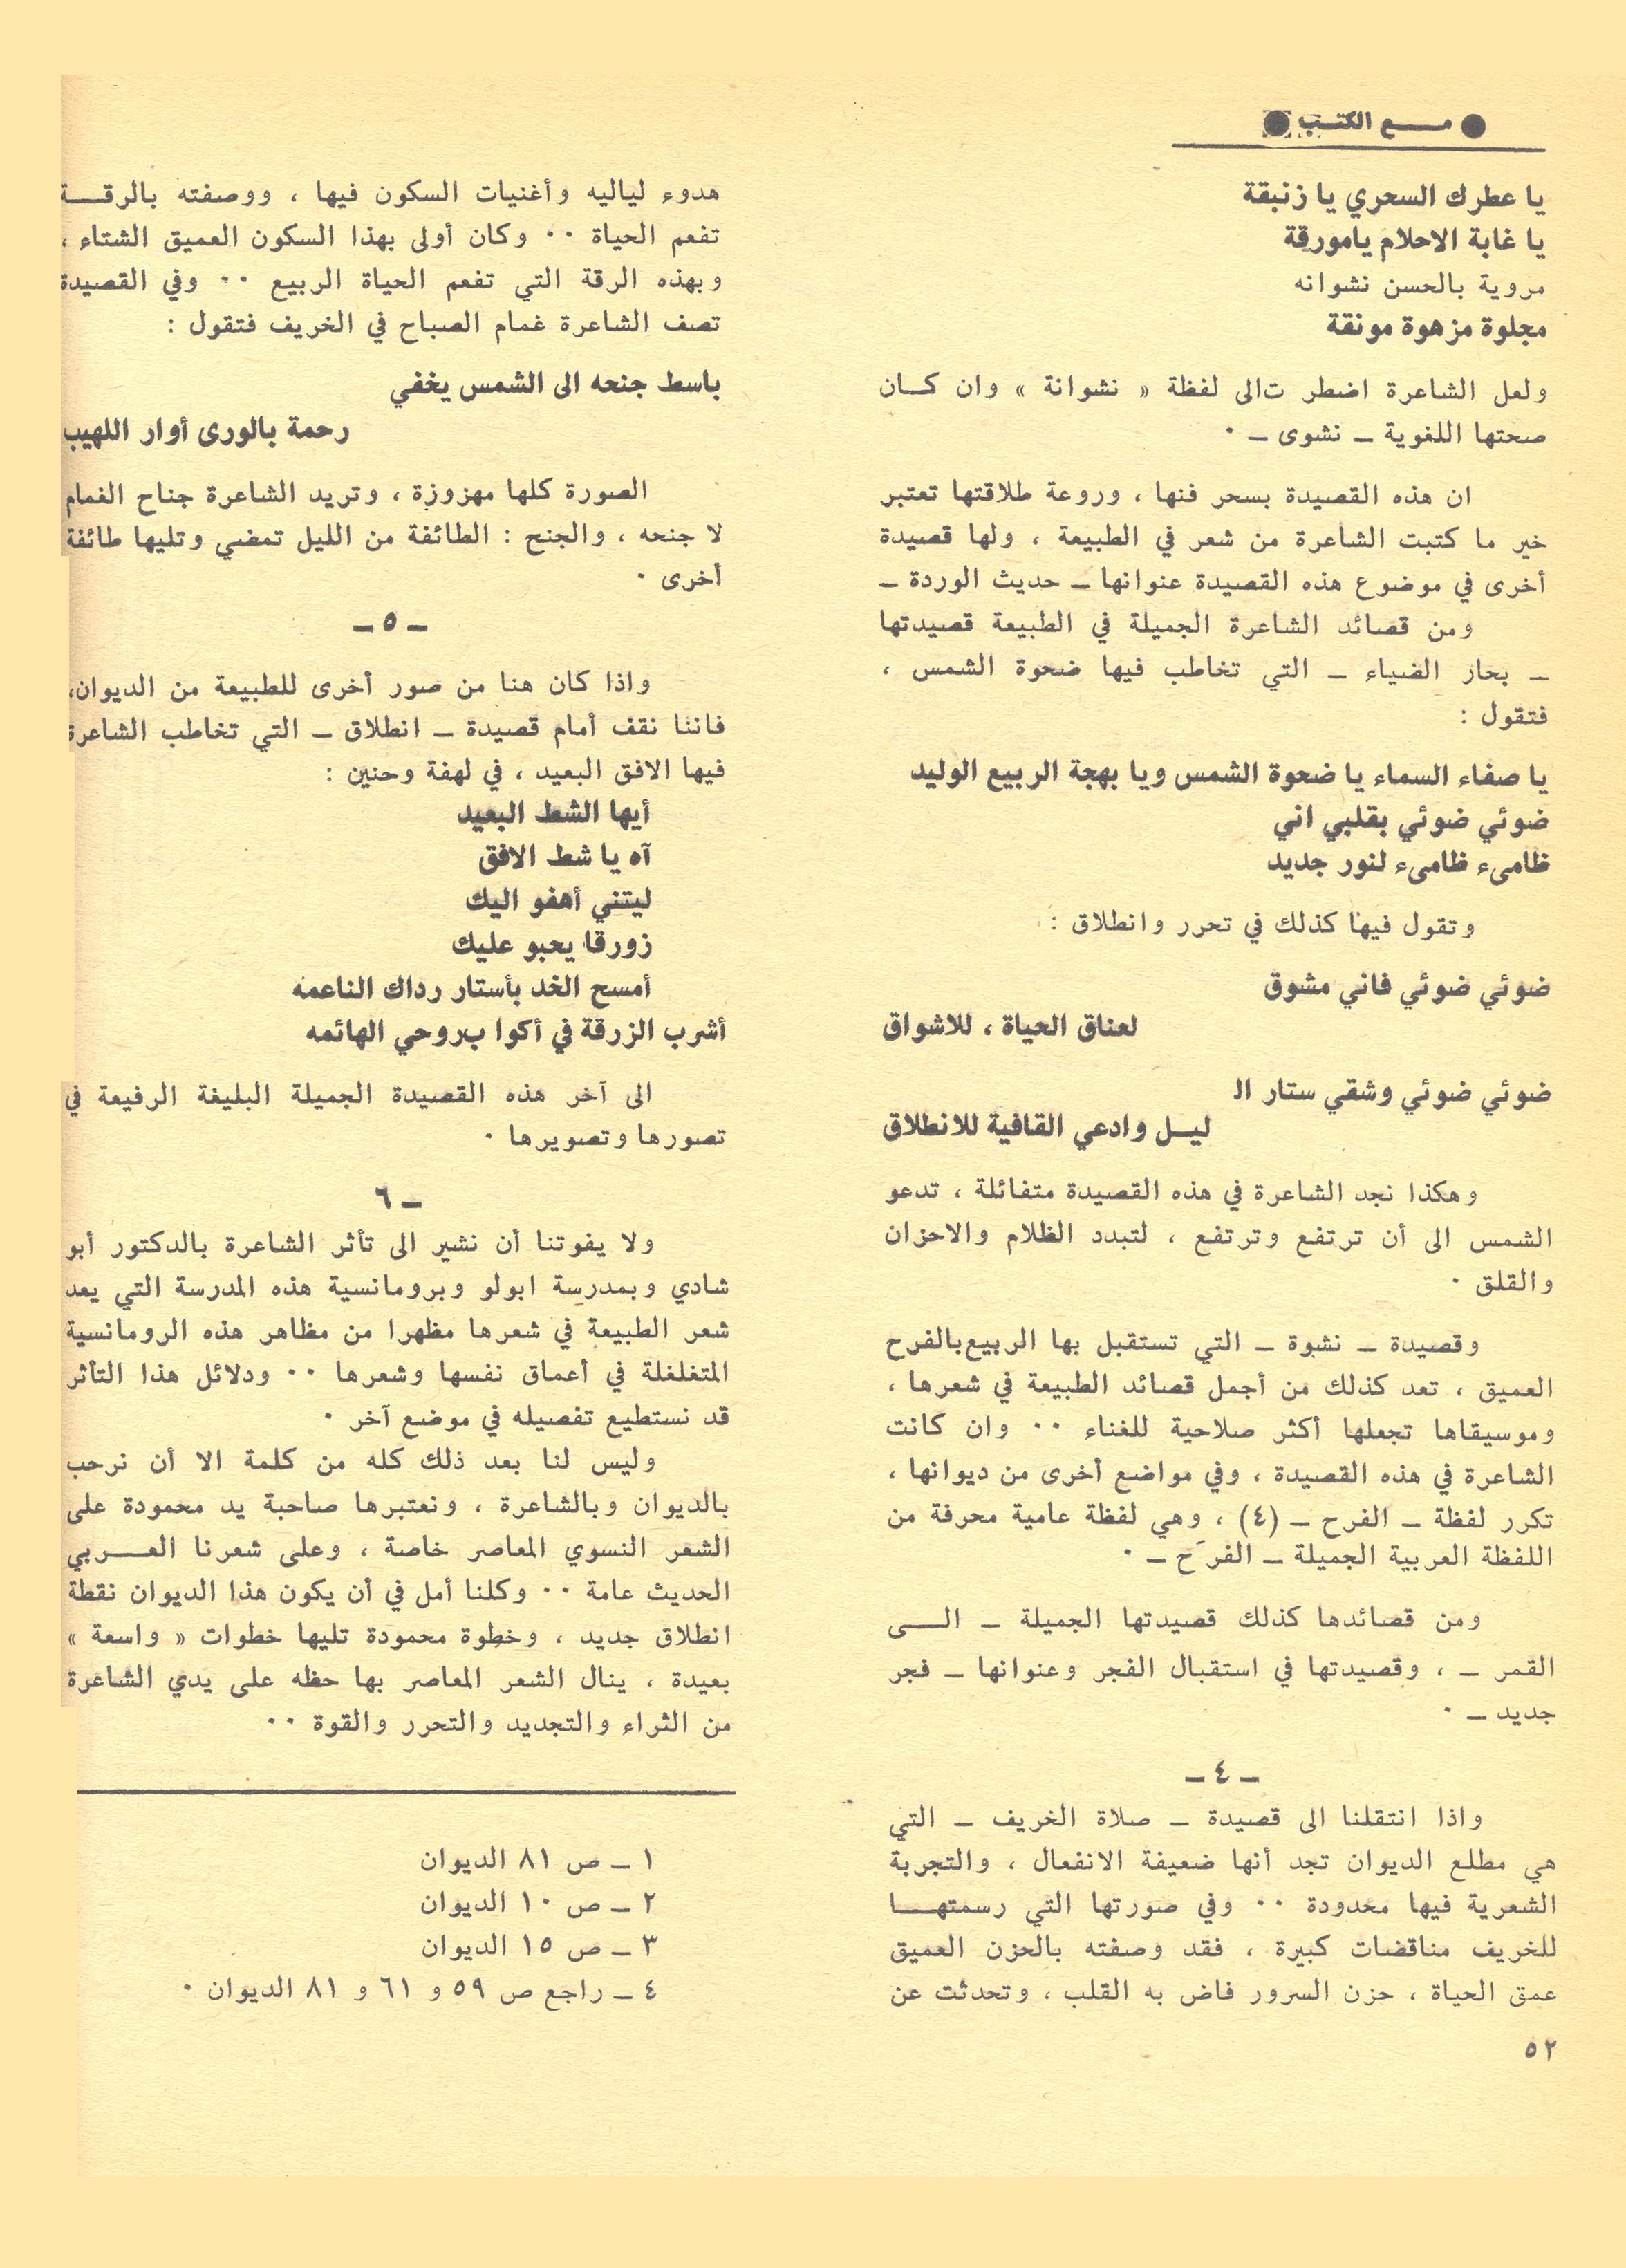 ● مـــع الكتـب ●
يا عطرك السحري يا زنبقة
يا غابة الاحلام يامورقة
مروية بالحسن نشوانه
مجلوة مزهوة مونقة
ولعل الشاعرة اضطر تالى لفظة « نشوانة » وان كـان
صحتها اللغوية ـ نشوى ـ ٠
ان هذه القصيدة بسحر فنها ، وروعة طلاقتها تعتبر
خير ما كتبت الشاعرة من شعر في الطبيعة ، ولها قصيدة
أخرى في موضوع هذه القصيدة عنوانها ـ حديث الوردة ـ
ومن قصائد الشاعرة الجميلة في الطبيعة قصيدتها
ـ بحار الضياء ـ التي تخاطب فيها ضحوة الشمس ،
فتقول :
يا صفاء السماء يا ضحوة الشمس ويا بهجة الربيع الوليد
ضوئي ضوئي بقلبي اني
ظامىء ظامىء لنور جديد
وتقول فيها كذلك في تحرر وانطلاق :
ضوئي ضوئي فاني مشوق
لعناق الحياة ، للاشواق
ضوئي ضوئي وشقي ستار الـ
ليـل وادعي القافية للانطلاق
وهكذا نجد الشاعرة في هذه القصيدة متفائلة ، تدعو
الشمس الى أن ترتفع وترتفع ، لتبدد الظلام والاحزان
والقلق ٠
وقصيدة ـ نشوة ـ التي تستقبل بها الربيع بالفرح
العميق ، تعد كذلك من أجمل قصائد الطبيعة في شعرها ،
وموسيقاها تجعلها أكثر صلاحية للغناء ٠٠ وان كانت
الشاعرة في هذه القصيدة ، وفي مواضع أخرى من ديوانها ،
تكرر لفظة ـ الفرح ـ (٤) ، وهي لفظة عامية محرفة من
اللفظة العربية الجميلة ـ الفرَح ـ ٠
ومن قصائدها كذلك قصيدتها الجميلة ـ الـــى
القمر ـ ، وقصيدتها في استقبال الفجر وعنوانها ـ فجر
جديد ـ ٠
ـ ٤ ـ
واذا انتقلنا الى قصيدة ـ صلاة الخريف ـ التي
هي مطلع الديوان تجد أنها ضعيفة الانفعال ، والتجربة
الشعرية فيها محدودة ٠٠ وفي صورتها التي رسمتهـــا
للخريف مناقضات كبيرة ، فقد وصفته بالحزن العميق
عمق الحياة ، حزن السرور فاض به القلب ، وتحدثت عن
٥٢
هدوء لياليه وأغنيات السكون فيها ، ووصفته بالرقـــة
تفعم الحياة ٠٠ وكان أولى بهذا السكون العميق الشتاء ،
وبهذه الرقة التي تفعم الحياة الربيع ٠٠ وفي القصيدة
تصف الشاعرة غمام الصباح في الخريف فتقول :
باسط جنحه الى الشمس يخفي
رحمة بالورى أوار اللهيب
الصورة كلها مهزوزة ، وتريد الشاعرة جناح الغمام
لا جنحه ، والجنح : الطائفة من الليل تمضي وتليها طائفة
أخرى ٠
ـ ٥ ـ
واذا كان هنا من صور أخرى للطبيعة من الديوان،
فاننا نقف أمام قصيدة ـ انطلاق ـ التي تخاطب الشاعرة
فيها الافق البعيد ، في لهفة وحنين :
أيها الشط البعيد
آه يا شط الافق
ليتني أهفو اليك
زورقا يحبو عليك
أمسح الخد بأستار رداك الناعمه
أشرب الزرقة في أكوا بروحي الهائمه
الى آخر هذه القصيدة الجميلة البليغة الرفيعة في
تصورها وتصويرها ٠
ـ ٦
ولا يفوتنا أن نشير الى تأثر الشاعرة بالدكتور أبو
شادي وبمدرسة ابولو وبرومانسية هذه المدرسة التي يعد
شعر الطبيعة في شعرها مظهرا من مظاهر هذه الرومانسية
المتغلغلة في أعماق نفسها وشعرها ٠٠ ودلائل هذا التأثر
قد نستطيع تفصيله في موضع آخر ٠
وليس لنا بعد ذلك كله من كلمة الا أن نرحب
بالديوان وبالشاعرة ، ونعتبرها صاحبة يد محمودة على
الشعر النسوي المعاصر خاصة ، وعلى شعرنا العــــربي
الحديث عامة ٠٠ وكلنا أمل في أن يكون هذا الديوان نقطة
انطلاق جديد ، وخطوة محمودة تليها خطوات « واسعة »
بعيدة ، ينال الشعر المعاصر بها حظه على يدي الشاعرة
من الثراء والتجديد والتحرر والقوة ٠٠
١ ـ ص ٨١ الديوان
٢ ـ ص ١٠ الديوان
٣ ـ ص ١٥ الديوان
٤ ـ راجع ص ٥٩ و ٦١ و ٨١ الديوان ٠